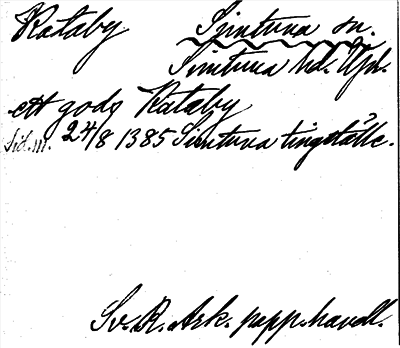 Rataby Simtuna sn.
Simtuna hd. Upl.
ett gods Rataby
Sid. m. 24/8 1385 Simtuna tingställe.
Sv. R. Ark. papp. handl.